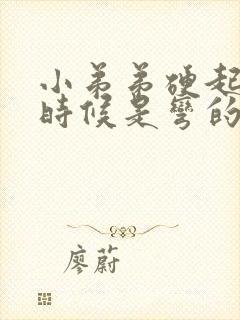 小弟弟硬起
時候是彎的
廖蔚